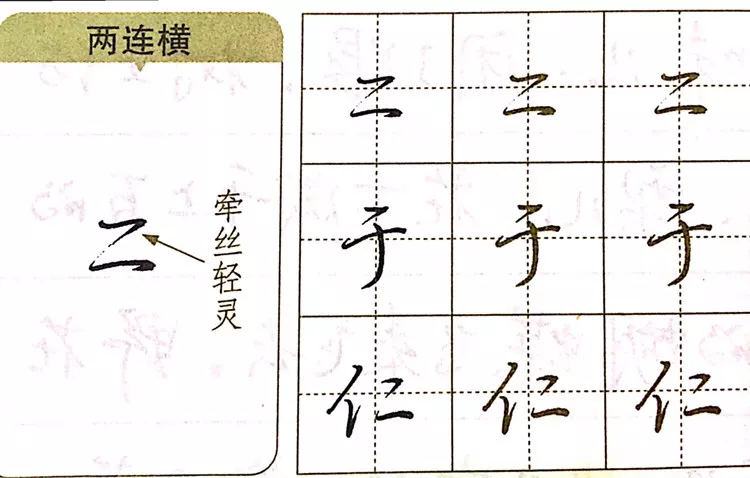 两连横
二
牵丝轻灵
二 二 二
于 于 于
仁 仁 仁